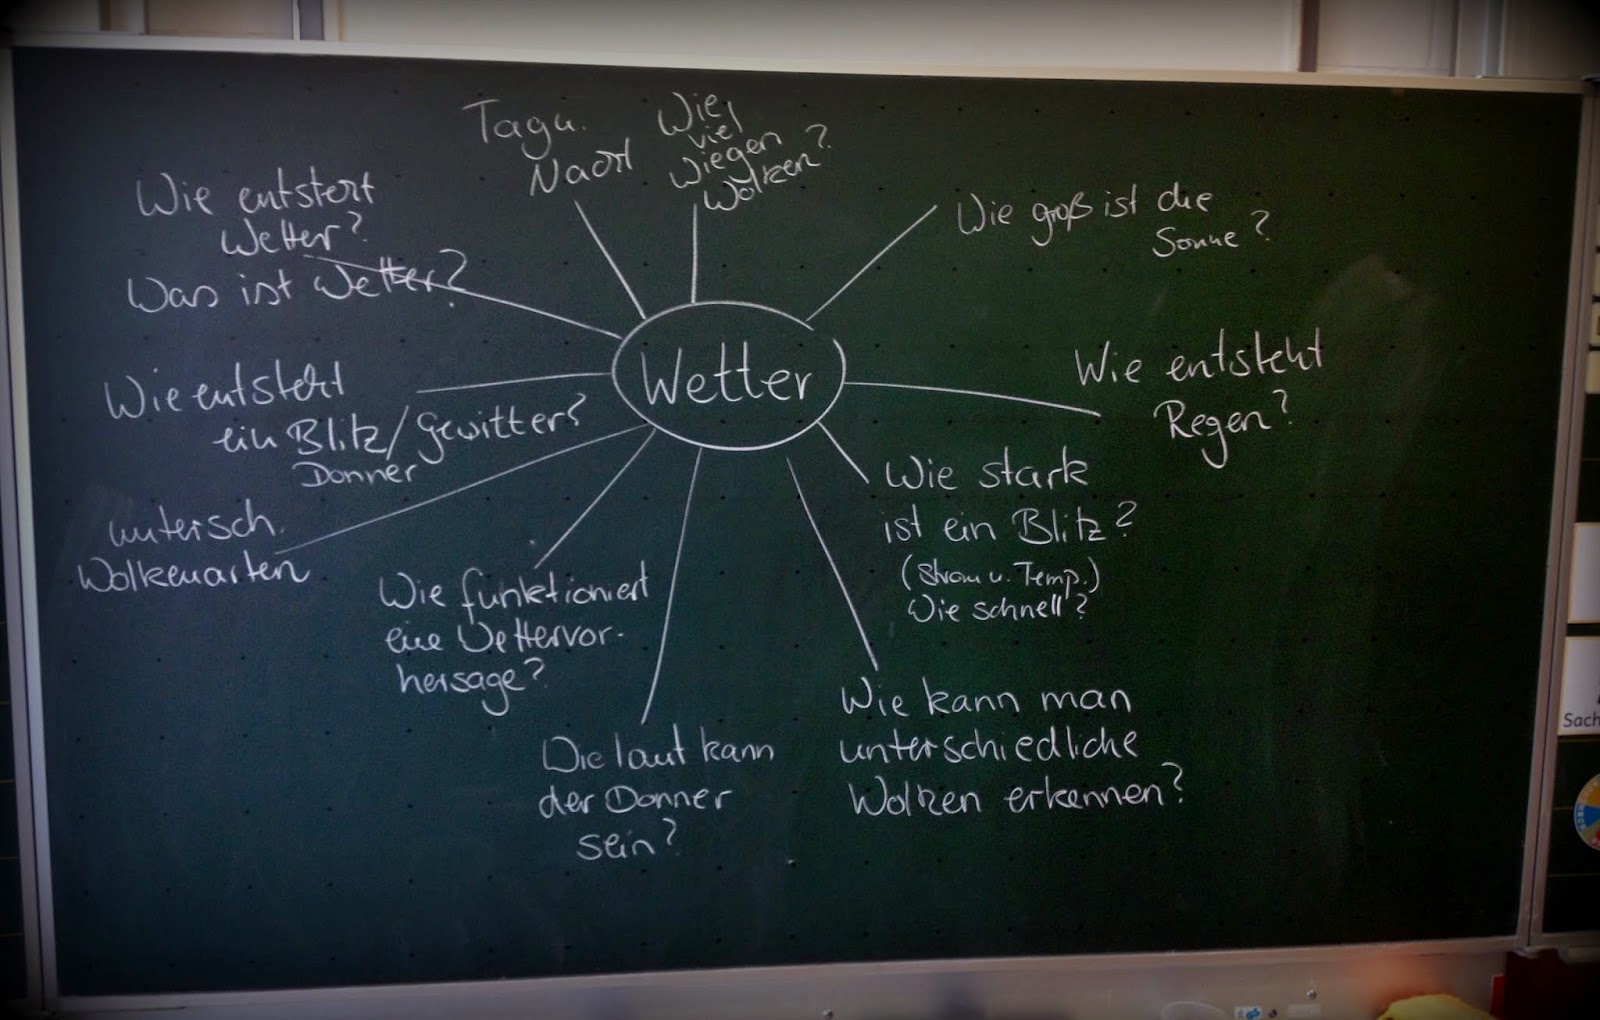 Tag u.
Nacht
Wie
viel
wiegen
Wolken?
Wie groß ist die
Sonne?
Wie entsteht
Wetter?
Was ist Wetter?
Wetter
Wie entsteht
Regen?
Wie entsteht
ein Blitz/Gewitter?
Donner
Wie stark
ist ein Blitz?
(Strom u. Temp.)
Wie schnell?
untersch.
Wolkenarten
Wie funktioniert
eine Wettervor-
hersage?
Wie kann man
unterschiedliche
Wolken erkennen?
Wie laut kann
der Donner
sein?
Sach